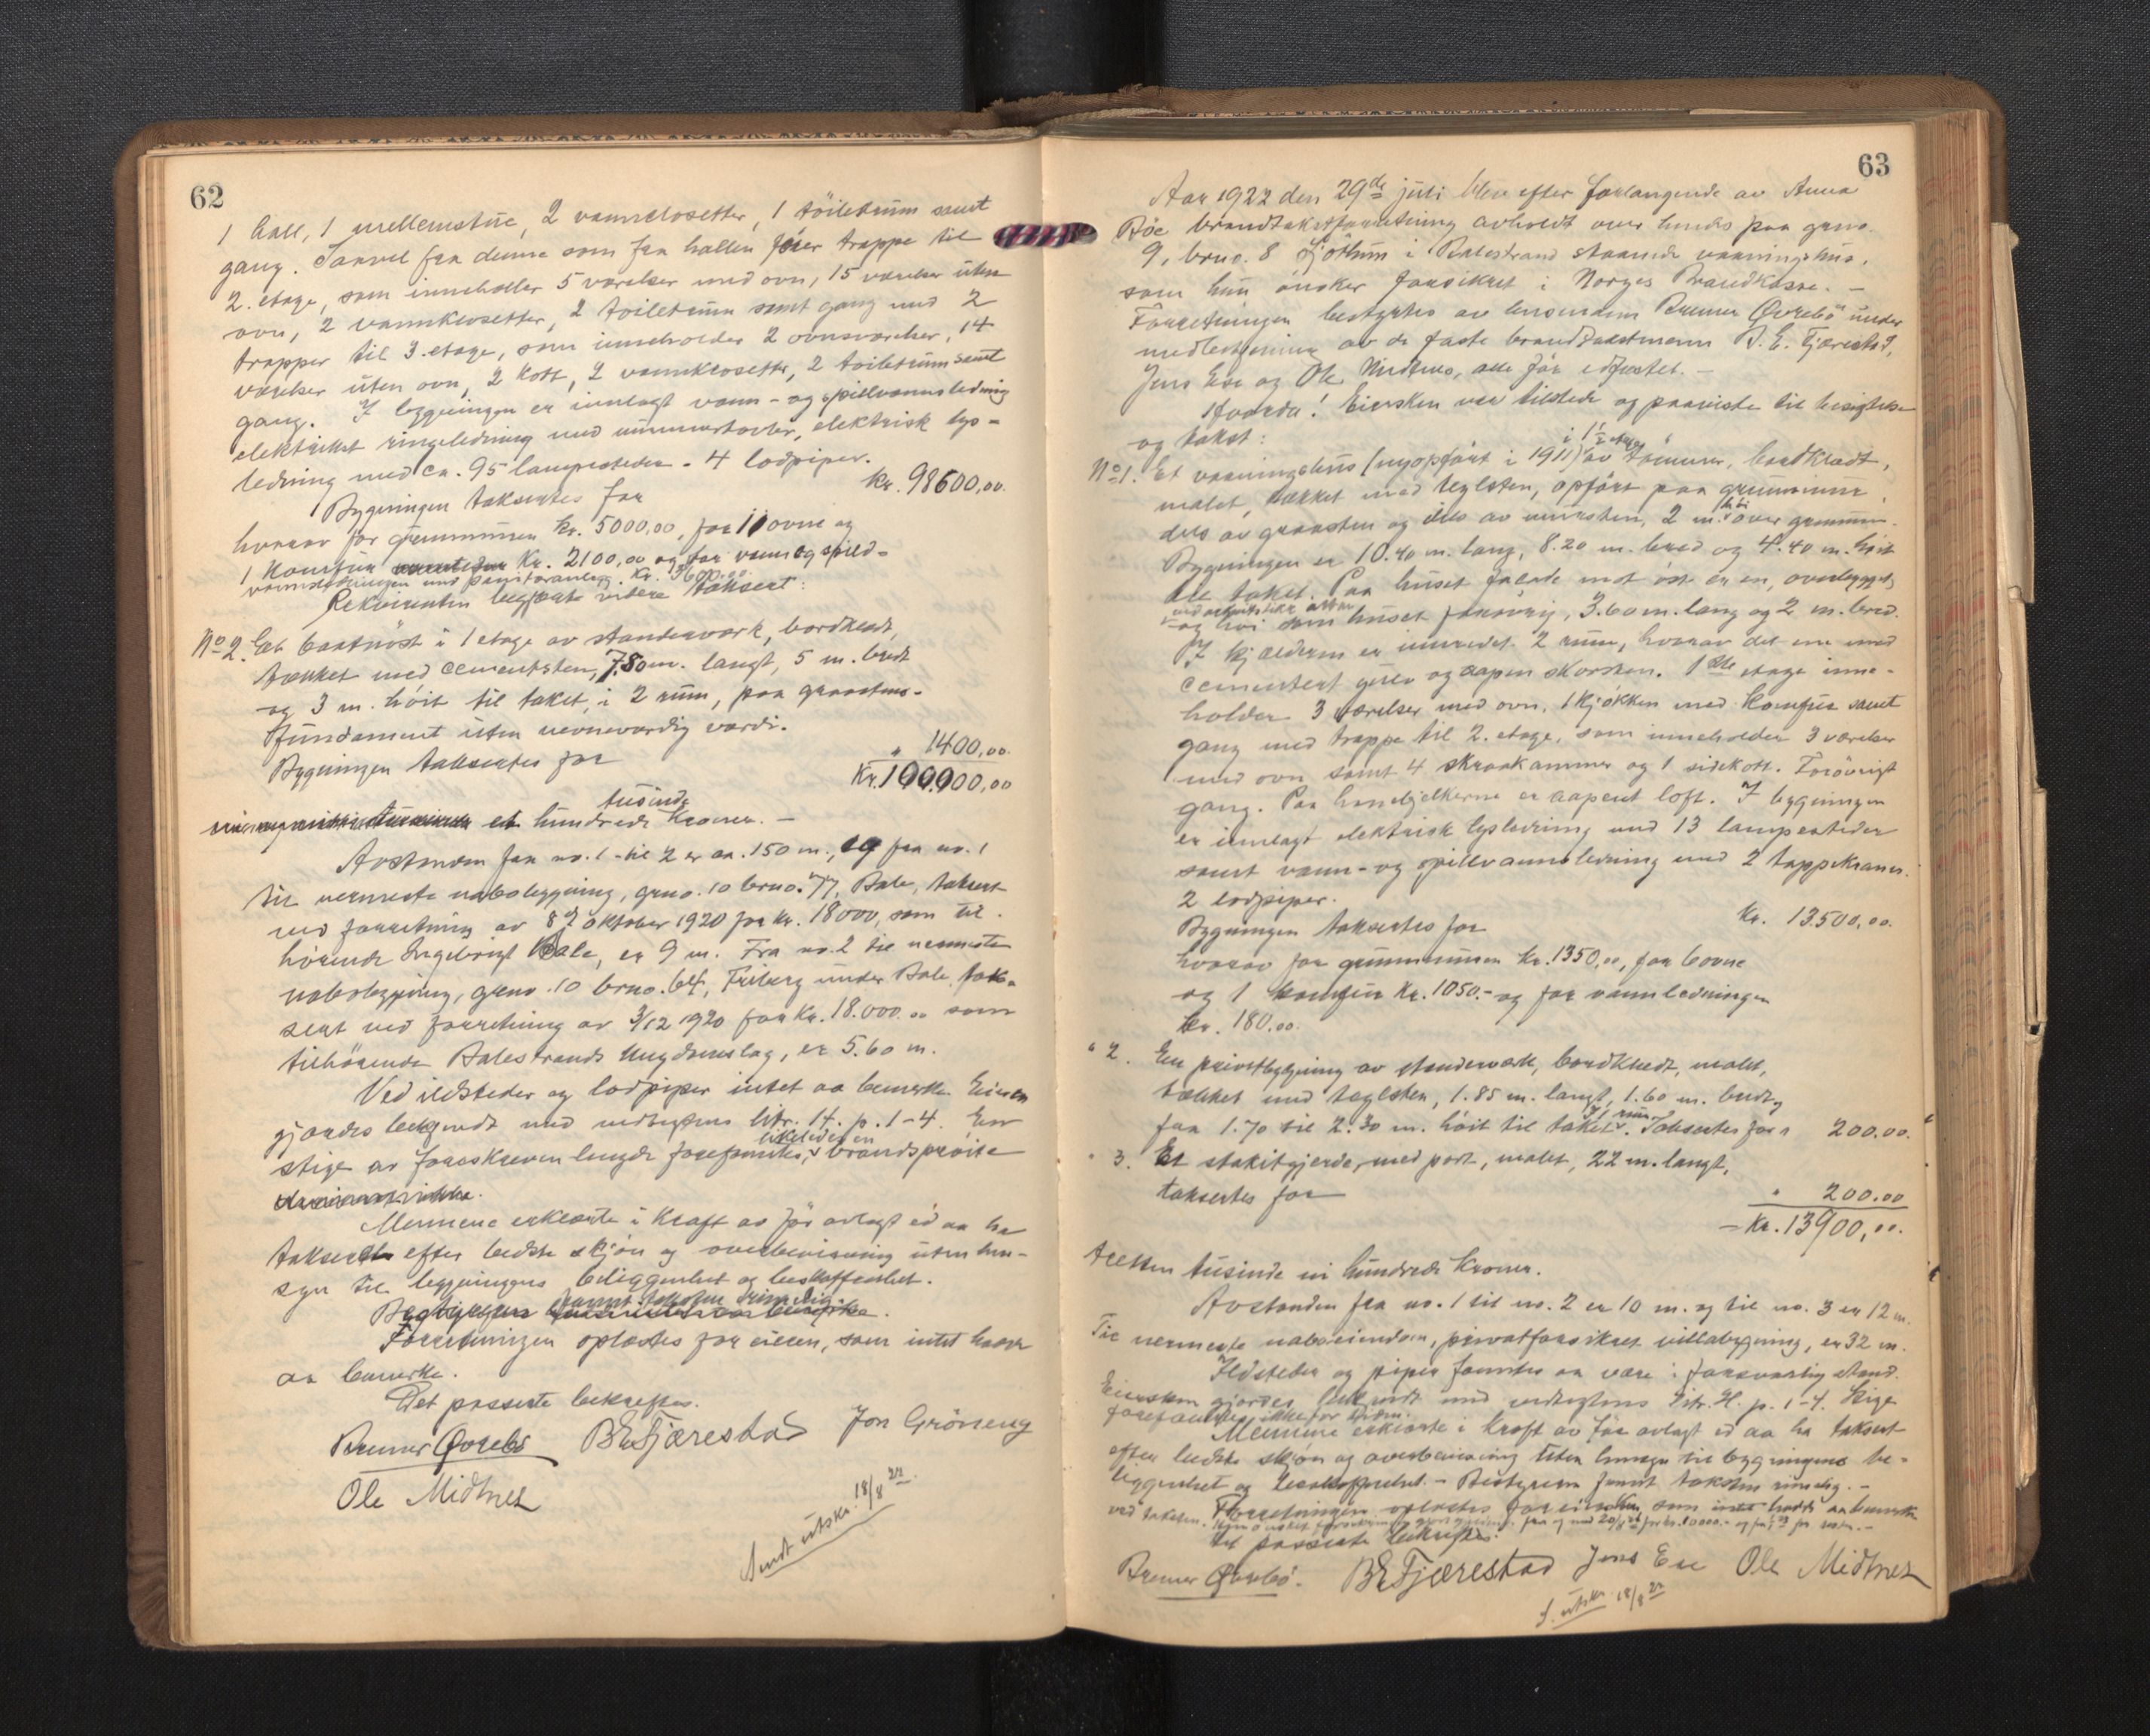 62
1 hall, 1 mellemstue, 2 vannclosetter, 1 töiletrum samt
gang. Saavel fra denne som fra hallen förer trappe til
2. etage, som inneholder 5 værelser med ovn, 15 værelser uten
ovn, 2 vannklosetter, 2 toiletrum samt gang med 2
trapper til 3. etage, som inneholder 2 ovnsværelser, 14
værelser uten ovn, 2 kott, 2 vannklosetter, 2 toiletrum samt
gang. I bygningen er innlagt vann- og spillvannsledning
elektrisk ringeledning med nummertavler, elektrisk lys-
ledning med ca. 95 lampesteder. 4 lodpiper.
Bygningen takseres for kr. 98600,00.
hvorav for grunnmuren kr. 5000,00, for 11 ovne og
1 komfur Kr. 2100,00 og for vann og spild-
vannsledningen med Kr. 3600.00.
Rekvirenten begjærte videre taksert:
No 2. Et baatnöst i 1 etage av standerværk, bordklædt,
tækket med cementsten, 7.80 m. langt, 5 m. bredt
og 3 m. höit til taket, i 2 rum, paa graastens-
fundament uten nevneværdig værdi.
Bygningen takseres for " 1400,00.
Kr. 100.000,00
et hundrede tusinde Kroner. -
Avstanden fra no. 1 til 2 er ca. 150 m., og fra no. 1
til nærmeste nabobygning, grno. 10 brno. 77, Bale, taksert
ved forretning av 8/ oktober 1920 for kr. 18000, som til-
hörende Ingebrigt Bale, er 9 m. Fra no. 2 til nærmeste
nabobygning, grno. 10 brno. 64, Friborg under Bale, tak-
sert ved forretning av 3/12 1920 for Kr. 18.000.00 som
tilhörende Balestrands Ungdomslag, er 5.60 m.
Ved ildsteder og lodpiper intet aa bemerke. Eieren
gjordes bekjendt med vedtegtens litr. H. p. 1-4. En
stige av foreskreven lengde forefinntes, likeledes en brandspröite
Mennene erklærte i kraft av för avlagt ed aa ha
taksert efter bedste skjön og overbevisning uten hen-
syn til bygningens beliggenhet og beskaffenhet.
Bestyreren fannt taksten rimelig.
Forretningen oplæstes for eieren, som intet hadde
aa bemerke.
Det passerte bekreftes.
Bremer Øvrebö B E Fjærestad Jon Gröneng
Ole Midtnes
Sendt utskr. 18/8 22.
63
Aar 1922 den 29de juli blev efter forlangende av Anna
Böe brandtakstforretning avholdt over hendes paa grno.
9, brno. 8 Sjötun i Balestrand staaende vaaningshus,
som hun önsker forsikret i Norges Brandkasse. -
Forretningen bestyrtes av lensmann Bremer Øvrebö under
medbetjening av de faste brandtakstmenn B. E. Fjærestad,
Jens Ese og Ole Midtnes, alle för edfæstet. -
Hvorda! Eiersken var tilstede og paaviste til besigtelse
og takst:
No 1. Et vaaningshus (nyopfört i 1911) i 1 1/2 etage av tömmer, bordklædt,
malet, tækket med teglsten, opfört paa grunnmur
dels av graasten og dels av mursten, 2 m. höi over grunnen.
Bygningen er 10.40 m. lang, 8.20 m. bred og 4.40 m. höit
til taket. Paa huset facade mot öst er en, overbygget,
og höi som huset forövrig, 3.60 m. lang og 2 m. bred.
I kjælderen er innredet 2 rum, hvorav det ene med
cementert gulv og aapen skorsten. 1ste etage inne-
holder 3 værelser med ovn, 1 kjökken med komfur samt
gang med trappe til 2. etage, som inneholder 3 værelser
med ovn samt 4 skraakammer og 1 sidekott. Forövrigt
gang. Paa hanebjelkerne er aapent loft. I bygningen
er innlagt elektrisk lysledning med 13 lampesteder
samt vann- og spillvannsledning med 2 tappekraner.
2 lodpiper.
Bygningen takseres for Kr. 13.500,00.
hvorav for grunnmuren Kr. 1350,00, for 6 ovne
og 1 komfur Kr. 1050.- og for vannledningen
kr. 180.00.
" 2. En privetbygning av standerværk, bordklædt, malet,
tækket med teglsten, 1.85 m. langt, 1.60 m. bredt og
fra 1.70 til 2.30 m. höit til taket. I 1 rum. Takseres for " 200.00.
" 3. Et stakitgjerde, med port, malet, 22 m. langt,
takseres for " 200.00
- Kr. 13900,00.
tretten tusinde ni hundrede Kroner.
Avstanden fra no. 1 til no. 2 er 10 m. og til no. 3 er 12 m.
Til nærmeste naboeiendom, privatforsikret villabygning, er 32 m.
Ildsteder og piper fanntes aa være i forsvarlig stand.
Eiersken gjordes bekjendt med vedtegtens Litr. H. p. 1-4. Stige
forefandtes ikke for tiden.
Mennene erklærte i kraft av för avlagt ed aa ha taksert
efter bedste skjön og overbevisning uten hensyn til bygningens be-
liggenhet og beskaffenhet. - Bestyreren fannt taksten rimelig. -
Forretningen oplæstes for eiersken, som intet hadde aa bemerke
ved taksten.
Det passerte bekreftes.
Bremer Øvrebö. B E Fjærestad Jens Ese Ole Midtnes
S. utskr. 18/8 22